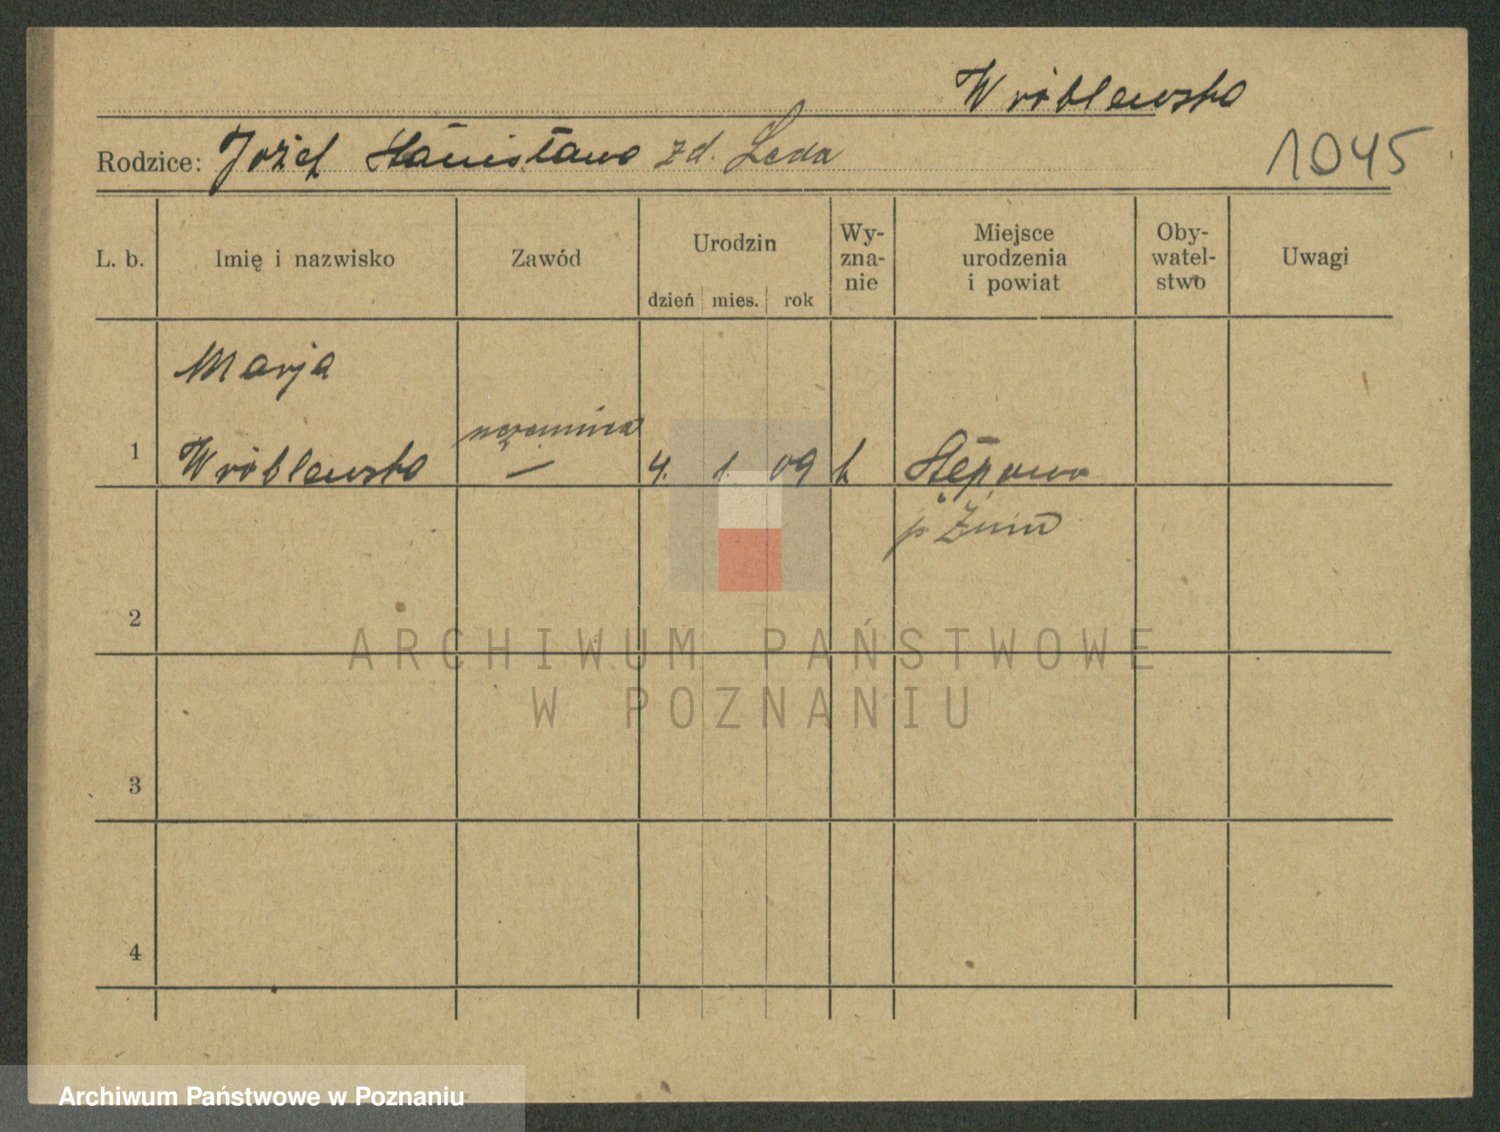 Wróblewska
Rodzice: Józef Stanisława zd. Leda
1045
L. b. Imię i nazwisko Zawód Urodzin Wy-zna-nie Miejsce urodzenia i powiat Oby-watel-stwo Uwagi
dzień mies. rok
Marja
1 Wróblewska uczennica — 4. 1. 09 k Stępowo
p. Żnin
2
3
4
ARCHIWUM PAŃSTWOWE
W POZNANIU
Archiwum Państwowe w Poznaniu